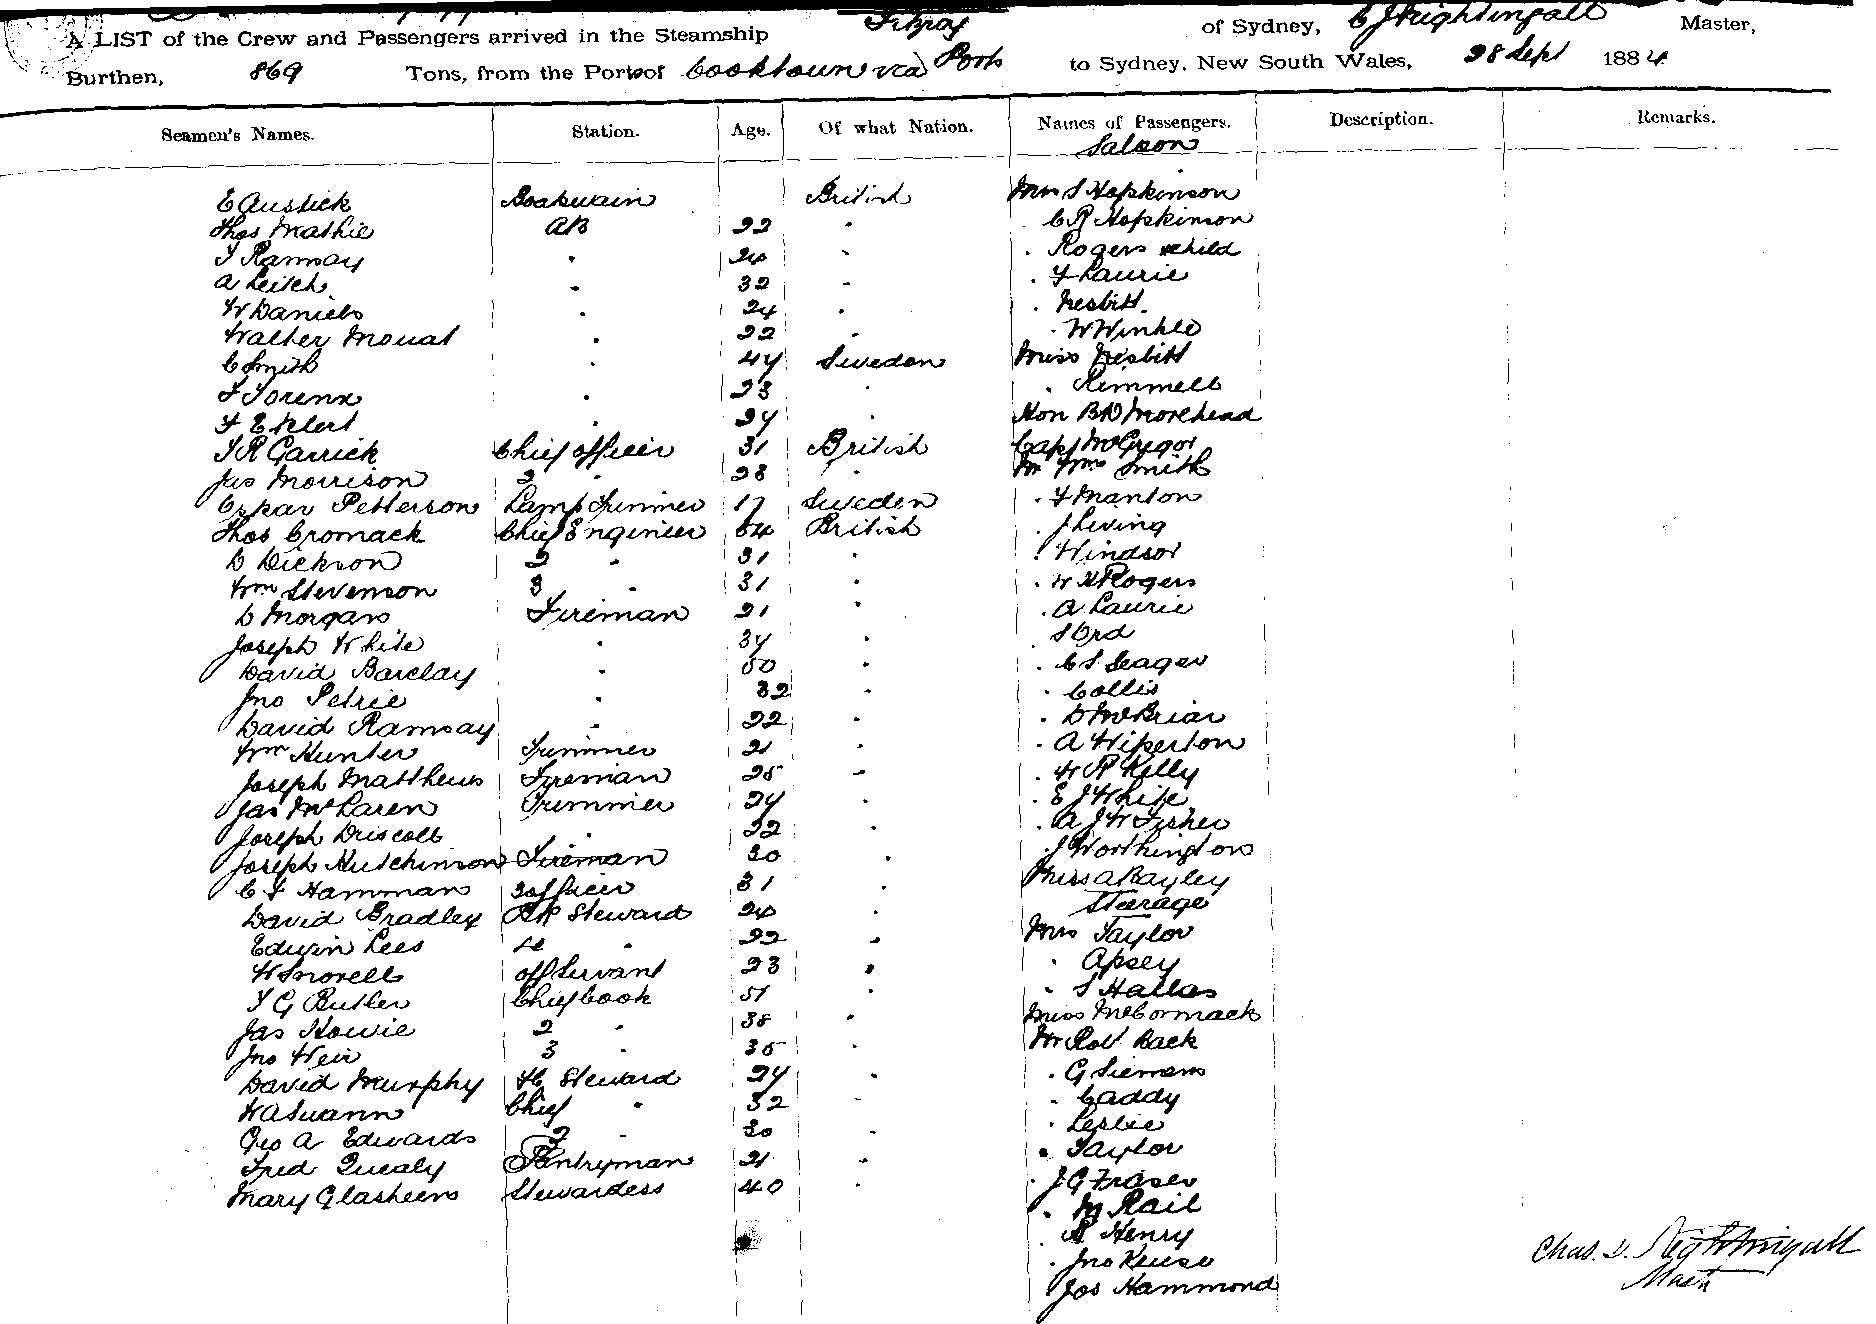 A LIST of the Crew and Passengers arrived in the Steamship Fitzroy of Sydney, C J Nightingall Master,
Burthen, 869 Tons, from the Port of Cooktown via Ports to Sydney, New South Wales, 28 Sept 1884
Seamen's Names. Station. Age. Of what Nation. Names of Passengers. Description. Remarks.
Saloon
E Austick Boatswain British Mrs S Hopkinson
Thos Mathie AB 22 " " C R Hopkinson
T Ramsay " 20 " " Rogers & child
A Leitch " 32 " " F Laurie
W Daniels " 24 " " Nesbitt
Walter Mouat " 22 " " W Winkle
C Smith " 44 Sweden Miss Nesbitt
F Torenx " 23 " " Kimmell
F Eklert " 24 " Hon B D Morehead
T R Garrick Chief officer 31 British Capt McGregor
Jas Morrison 2 " 28 " Mr Wm Smith
Oskar Petterson Lamp Trimmer 17 Sweden " F Manton
Thos Cromack Chief Engineer 64 British " J Living
D Dickson 2 " 31 " " Windsor
Wm Stevenson 3 " 31 " " W H Rogers
D Morgan Fireman 21 " " A Laurie
Joseph White " 34 " S Ord
David Barclay " 50 " " C S Seager
Jno Petrie " 32 " " Collis
David Ramsay " 22 " " D McBriar
Wm Hunter Trimmer 21 " " A Wiperton
Joseph Matthews Fireman 25 " " W R Kelly
Jas McLaren Trimmer 24 " " E J White
Joseph Driscoll " 22 " " A J W Fisher
Joseph Hutchinson Fireman 30 " " J Worthington
C F Hamman 3 officer 31 " Miss A Bayley
Steerage
David Bradley BK Steward 20 " Mrs Taylor
Edwin Lees " 22 " " Apsey
W Snorell off Servant 23 " " S Hallas
T G Butler Chief Cook 51 " Miss McCormack
Jas Howie 2 " 38 " Mr Robt Back
Jno Weir 3 " 35 " " G Siemans
David Murphy Steward 24 " " Caddy
W A Swann Chief " 32 " " Leslie
Geo A Edwards 2 " 30 " " Taylor
Fred Quealy Pantryman 21 " " J G Fraser
Mary Glasheen Stewardess 40 " " M Rail
" R Henry
" Jno Keuse
" Jos Hammond
Chas. J. Nightingall
Master